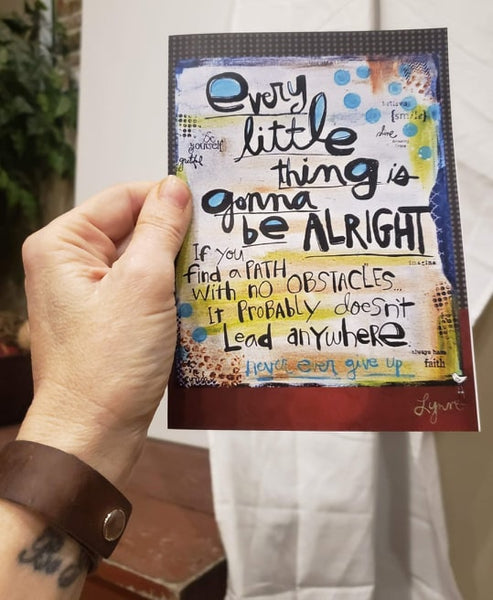 every
little
thing is
gonna
be ALRIGHT
If you
find a PATH
With no OBSTACLES...
it PRobABly doesn't
Lead anywheRe.
never ever give up
be
yourself
[smile]
shine
imagine
always have
faith
Lynne